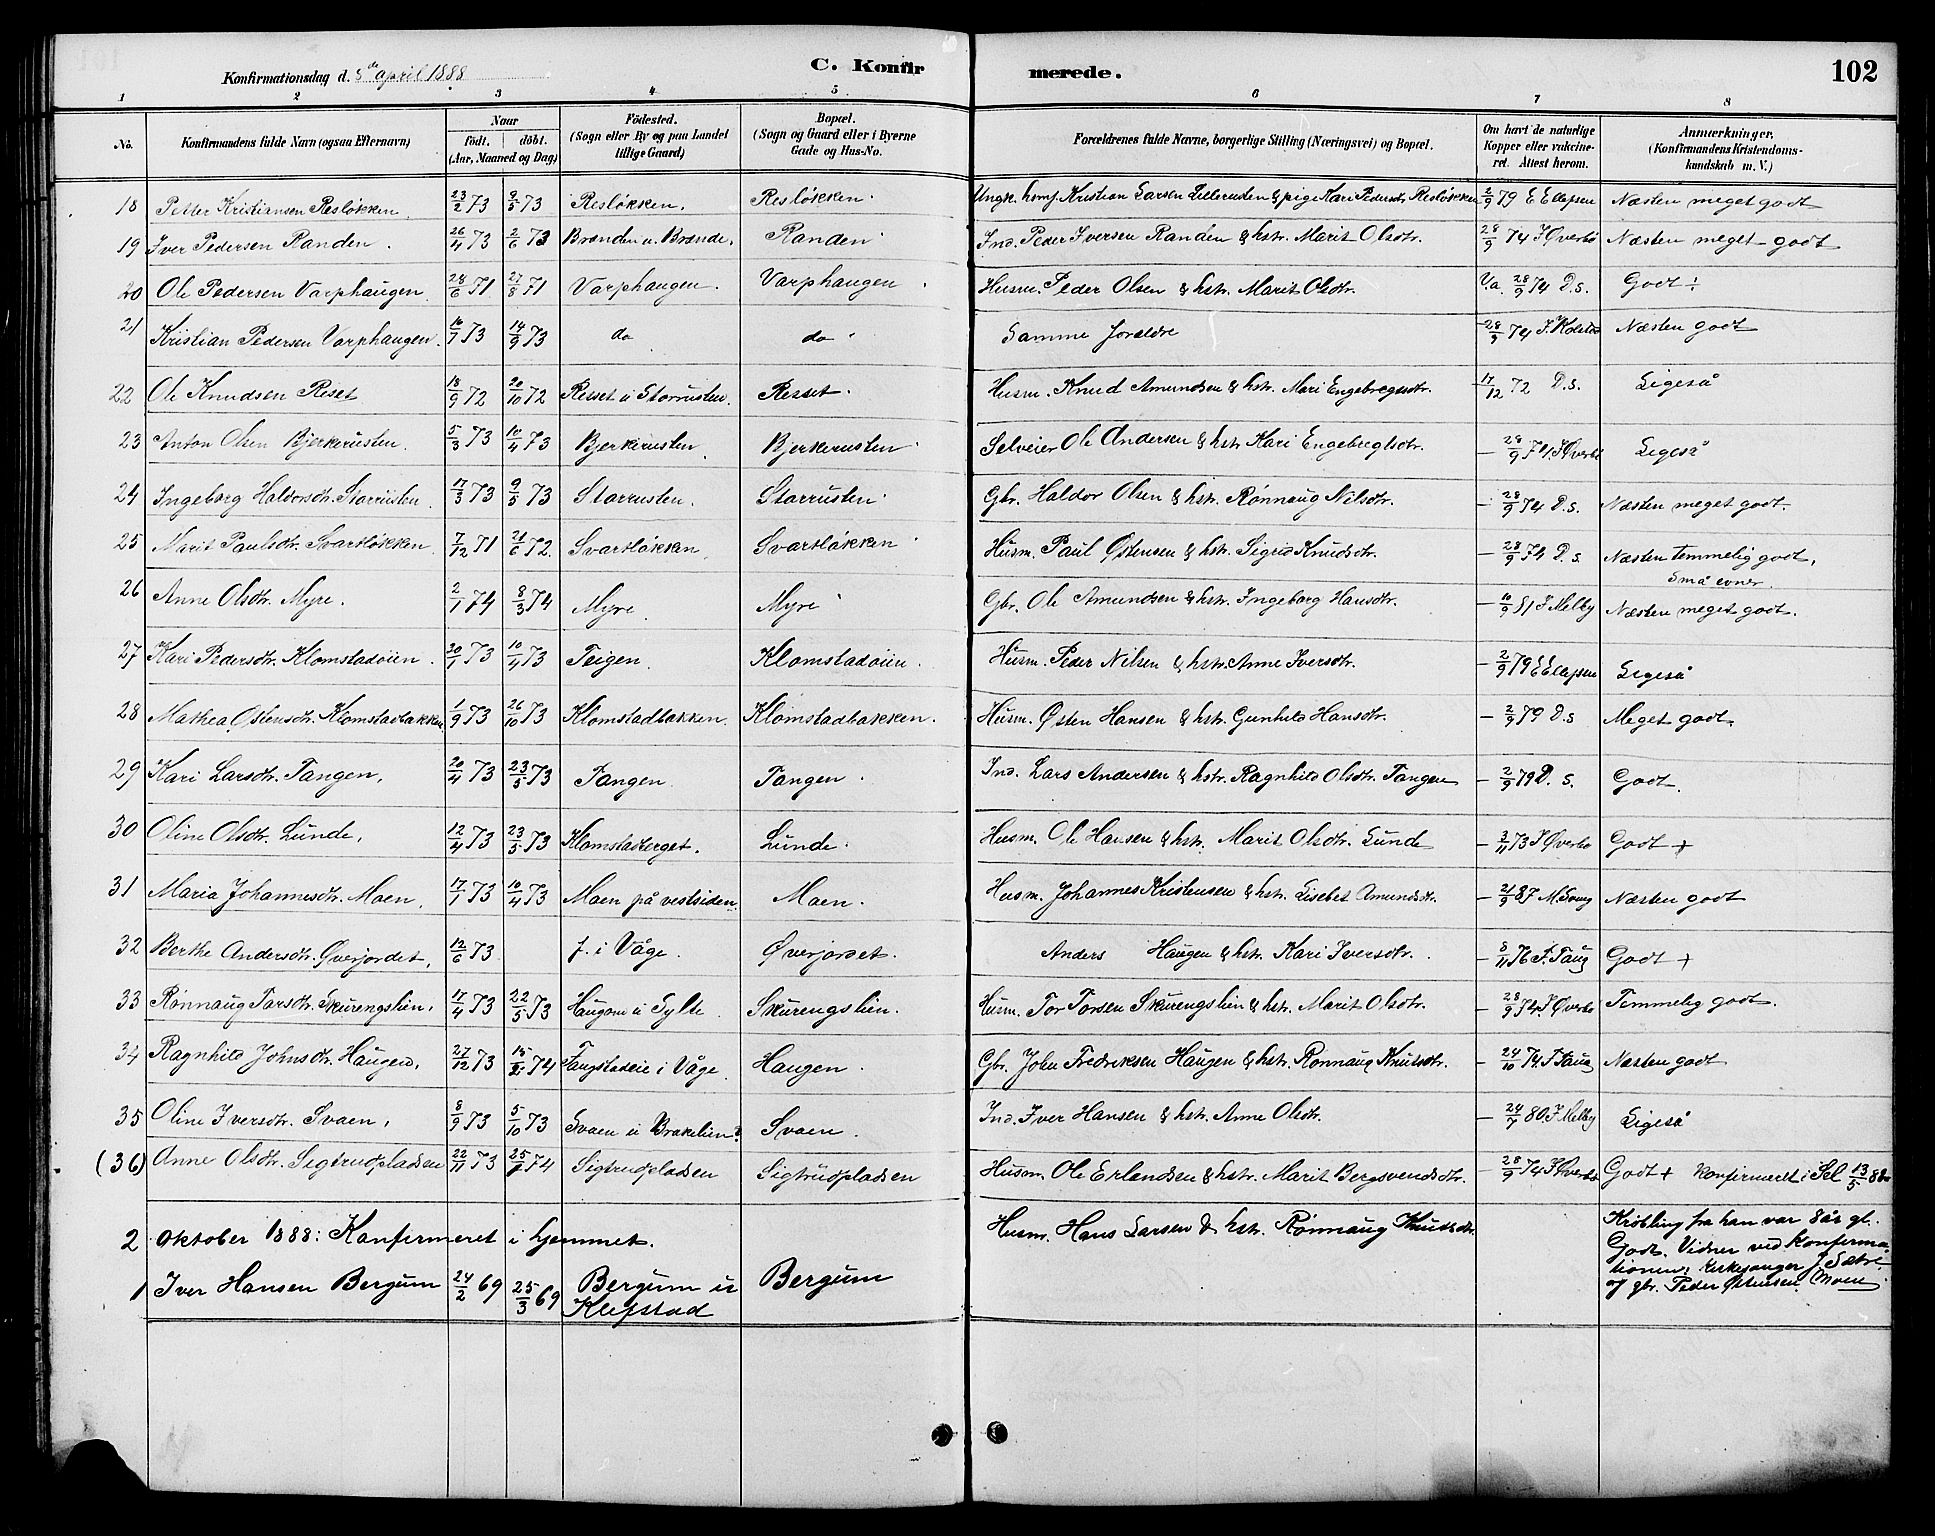 Konfirmationsdag d. 8de april 1888 C. Konfirmerede. 102
1 2 3 4 5 6 7 8
No. Konfirmandens fulde Navn (ogsaa Efternavn) Naar födt. döbt. (Aar, Maaned og Dag) Födested. (Sogn eller By og paa Landet tillige Gaard) Bopæl. (Sogn og Gaard eller i Byerne Gade og Hus-No. Forældrenes fulde Navne, borgerlige Stilling (Næringsvei) og Bopæl. Om havt de naturlige Kopper eller vakcineret. Attest herom. Anmærkninger. (Konfirmandens Kristendomskundskab m. V.)
18 Petter Kristiansen Resløkken. 23/2 73 9/5 73 Resløkken. Resløkken. Ungk. Kristian Larsen & pige Kari Pedersdtr. Resløkken 2/9 79 E Ellefsen Næsten meget godt
19 Iver Pedersen Randen. 26/4 73 2/6 73 Branden u. Brende. Randen Ind. Peder Iversen Randen & hstr. Marit Olsdtr. 28/9 74 J Øverbø Næsten meget godt
20 Ole Pedersen Varphaugen 24/6 71 27/8 71 Varphaugen. Varphaugen. Husm. Peder Olsen & hstr. Marit Olsdtr. V.a. 28/9 74 D.s. Godt ÷
21 Kristian Pedersen Varphaugen. 16/7 73 14/9 73 do do Samme foreldre 28/9 74 Næsten godt
22 Ole Knudsen Reset 18/9 72 20/10 72 Resset u Storrusten. Resset. Husm. Knud Amundsen & hstr. Mari Engebregtsdtr. 17/12 72 D.s. Ligeså
23 Anton Olsen Bjerkerusten 5/3 73 10/4 73 Bjerkerusten. Bjerkerusten Selveier Ole Andersen & hstr. Kari Engebregtsdtr. – 28/9 74 J Øverbø Ligeså
24 Ingeborg Haldorsdtr. Storrusten. 17/3 73 9/5 73 Storrusten. Storrusten. Gbr. Haldor Olsen & hstr. Rønnaug Nilsdtr. – 28/9 74 D.s. Næsten meget godt.
25 Marit Paulsdtr. Svartløkken 7/12 71 21/6 72. Svartløkken Svartløkken Husm. Paul Østensen & hstr. Sigrid Knudsdtr. – 28/9 74 D.s Næsten temmelig godt.
Små evner.
26 Anne Olsdtr. Myre. 2/1 74 8/3 74 Myre Myre Gbr. Ole Amundsen & hstr. Ingeborg Hansdtr. – 10/9 81 J Melby Næsten meget godt.
27 Kari Pedersdtr. Klomstadøien. 20/1 73 10/4 73 Teigen. Klomstadøien. Husm. Peder Nilsen & hstr. Anne Iversdtr. – 2/9 79 E Ellefsen Ligeså
28 Mathea Østensdtr. Klomstadbakken 1/9 73 26/10 73 Klomstadbakken. Klomstadbakken. Husm. Østen Hansen & hstr. Gunhild Hansdtr. – 2/9 79 D.s Meget godt.
29 Kari Larsdtr. Tangen. 20/4 73 23/5 73 Tangen. Tangen. Ind. Lars Andersen & hstr. Ragnhild Olsdtr. Tangen – 2/9 79 D.s. Godt.
30 Oline Olsdtr. Lunde. 12/4 73 23/5 73 Klomstadberget. Lunde. Husm. Ole Hansen & hstr. Marit Olsdtr. Lunde – 3/11 73 J Øverbø Godt +
31 Maria Johannesdtr. Moen. 17/1 73 10/4 73 Moen på vestsiden. Moen. Husm. Johannes Kristensen & hstr. Lisebet Amundsdtr. – 21/9 87 Næsten godt
32 Berthe Andersdtr. Øverjordet. 12/6 73 f. i Våge. Øverjordet. Anders Haugen & hstr. Kari Iversdtr. – 8/11 76 Godt +
33 Rønnaug Torsdtr. Skurengslien. 17/4 73 22/5 73 Haugom u Sylte Skurengslien. Husm. Tor Torsen Skurengslien & hstr. Marit Olsdtr. – 28/9 74 J Øverbø Temmelig godt.
34 Ragnhild Johnsdtr. Haugen. 27/12 73 15/2 74 Fangstadeie i Våge Haugen. Gbr. John Fredriksen Haugen & hstr. Rønnaug Knutsdtr. – 24/10 74 Næsten godt
35 Oline Iversdtr. Svaen. 8/9 73 5/10 73 Svaen u Brækelien? Svaen. Ind. Iver Hansen & hstr. Anne Olsdtr. – 24/7 80 J Melby Ligeså
(36) Anne Olsdtr. Sigtrudpladsen 22/11 73 25/1 74 Sigtrudpladsen Sigtrudpladsen Husm. Ole Erlandsen & hstr. Marit Bergsvendsdtr. – 28/9 74 J Øverbø Godt + Konfirmeret i Sel 13/5 88
2 Oktober 1888: Konfirmeret i hjemmet. Husm. Hans Larsen & hstr. Rønnaug Knutsdtr. Krøbling fra han var 8 år gl.
Godt. Vidner ved konfirma-
1 Iver Hansen Bergum 24/2 69 25/3 69 Bergum u Klefstad Bergum tionen: kirkesanger J Sætre
og gbr. Peder Østensen Moen